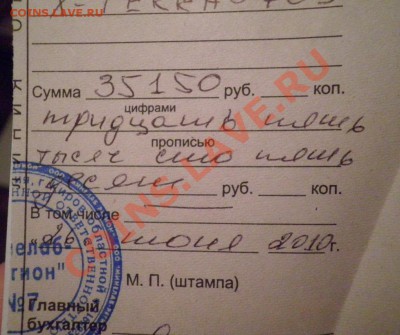 COINS.LAVE.RU
Сумма 35150 руб. коп.
цифрами
тридцать пять
прописью
тысяч сто пять
десят руб. коп.
В том числе
"26" июня 2010г.
М. П. (штампа)
Главный
бухгалтер
елаб
гион"
№7
COINS.LAVE.RU
COINS.LAVE.RU